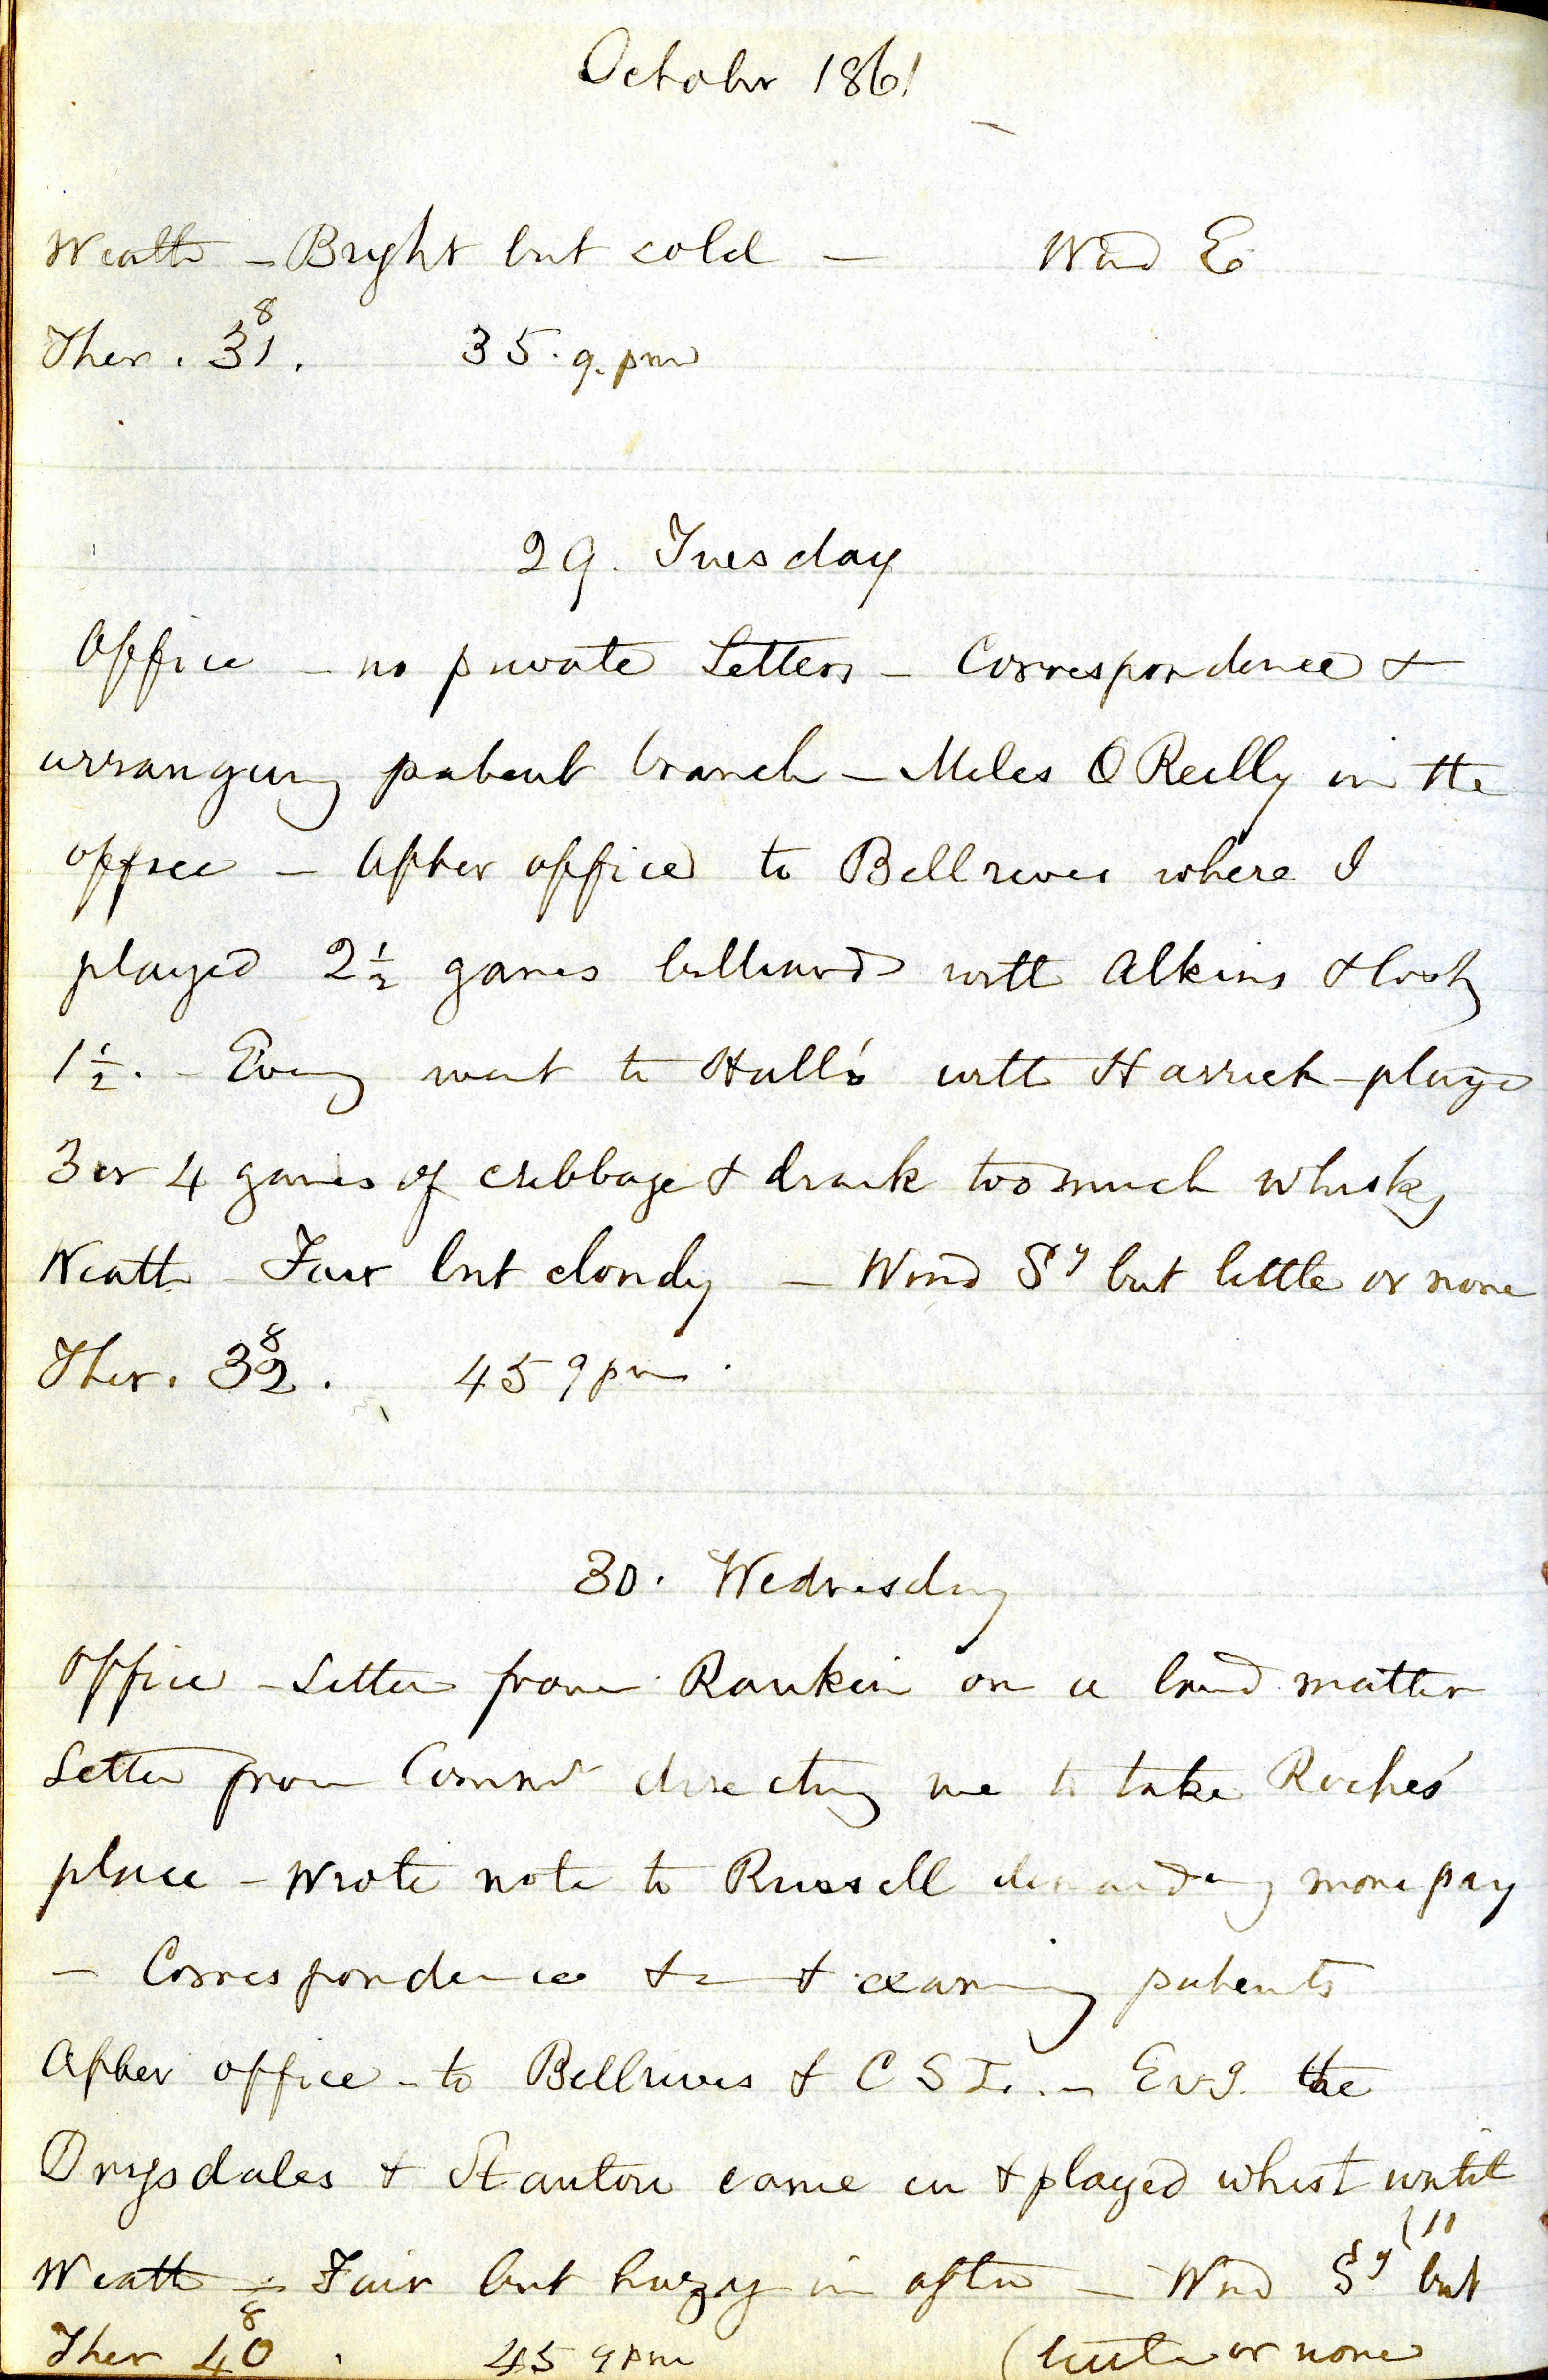 October 1861
Weathr — Bright but cold — Wind E.
8
Ther. 31. 35. 9. pm
29. Tuesday
Office — no private Letters — Correspondence &
arranging patent branch — Miles O Reilly in the
office — After office to Bellrives where I
played 2½ games billiards with Atkins & lost
1½. — Eveng went to Hall's with Harrick — playd
3 or 4 games of cribbage & drank too much whisky
Weathr Fair but cloudy — Wind Sy but little or none
8
Ther. 32. 45 9 pm
30. Wednesday
Office — Letter from Rankin on a land matter
Letter from Commr directing me to take Roche's
place — Wrote note to Russell demanding more pay
— Correspondence & & patents
After office — to Bellrives & C S I. — Evg. the
Drysdales & Stanton came in & played whist until
(11
Weathr — Fair but hazy in aftn — Wind Sy but
8
Ther 40. 45 9 pm (little or none